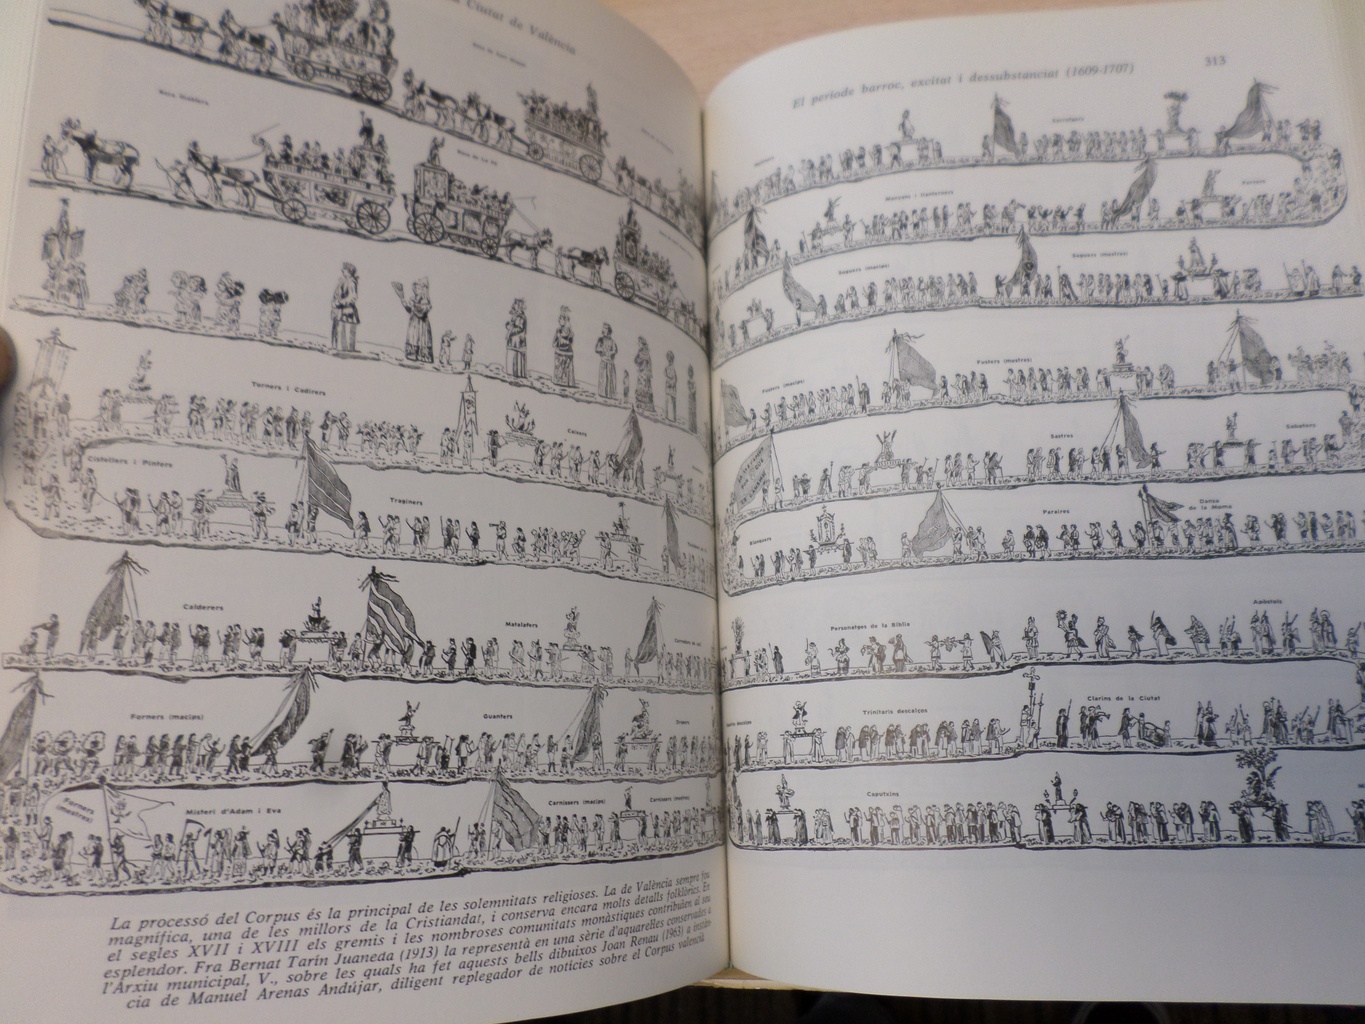 Ciutat de València
Torners i Cadirers
Caixers
Cistellers i Pintors
Traginers
Calderers
Matalafers
Forners (macips)
Guanters
Forners
(mestres)
Misteri d'Adam i Eva
Carnissers (macips)
Carnissers (mestres)
La processó del Corpus és la principal de les solemnitats religioses. La de València sempre fou
magnífica, una de les millors de la Cristiandat, i conserva encara molts detalls folklòrics. En
el segles XVII i XVIII els gremis i les nombroses comunitats monàstiques contribuïen al seu
esplendor. Fra Bernat Tarín Juaneda (1913) la representà en una sèrie d'aquarel·les conservades a
l'Arxiu municipal, V., sobre les quals ha fet aquests bells dibuixos Joan Renau (1963) a
cia de Manuel Arenas Andújar, diligent replegador de notícies sobre el Corpus valencià
El període barroc, excitat i dessubstanciat (1609-1707)
313
Soguers (macips)
Soguers (mestres)
Fusters (macips)
Fusters (mestres)
Sastres
Sabaters
Paraires
Dansa
de la Moma
Personatges de la Bíblia
Apòstols
Trinitaris descalços
Clarins de la Ciutat
Caputxins